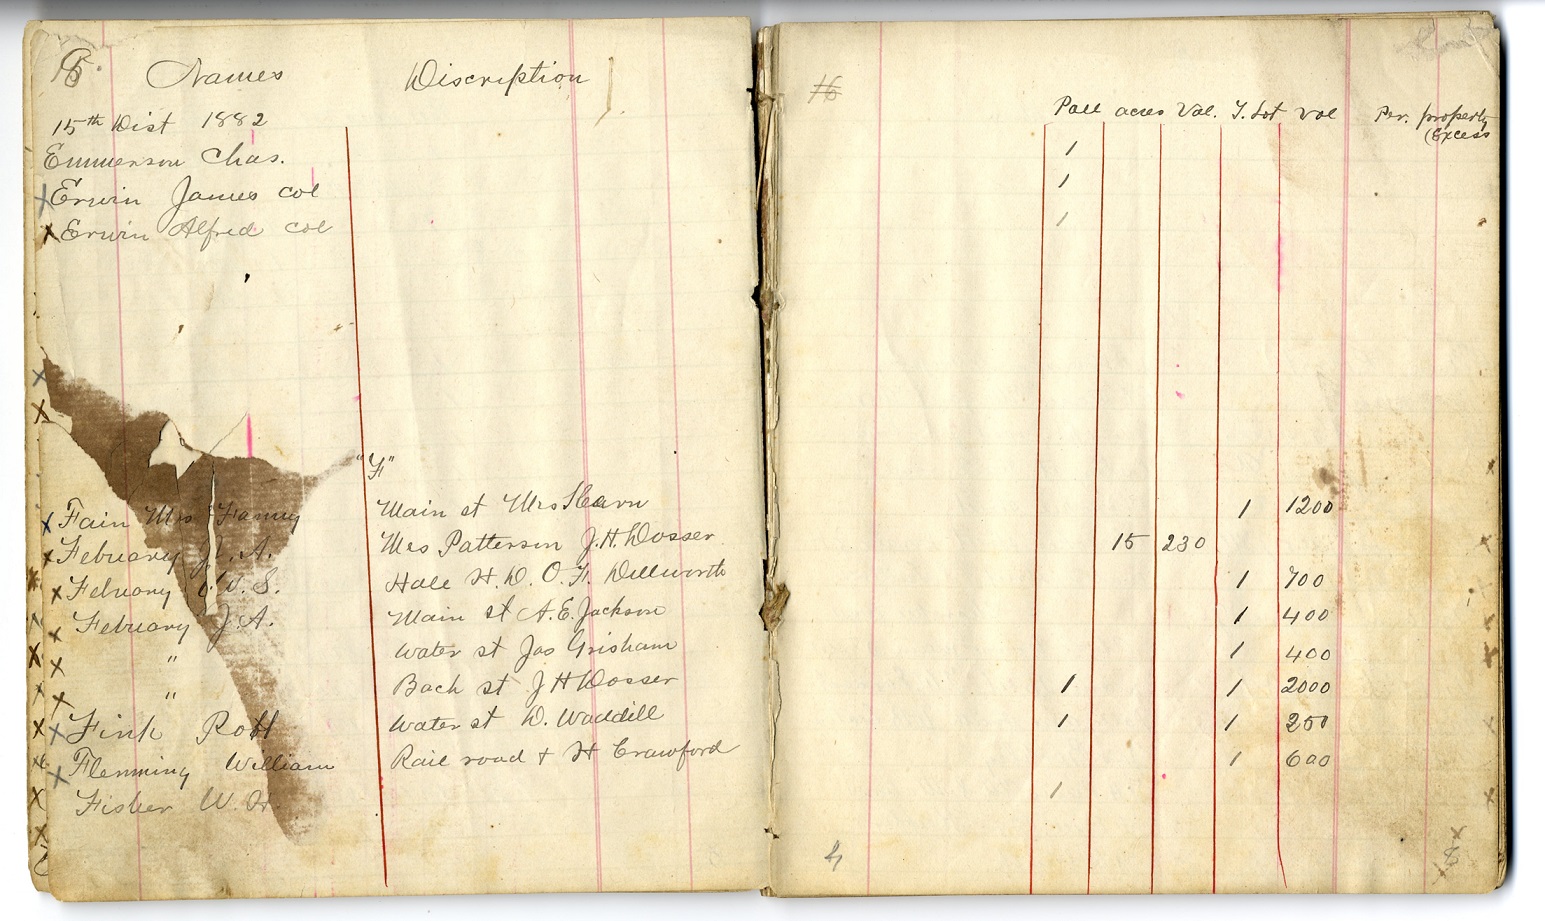 Names Discription
16 Poll acres Val. T. Lot Val Per. property
(Excess
15th Dist 1882
Emmerson Chas. 1
x Erwin James col 1
x Erwin Alfred col 1
x
x
"F"
x Fain Mrs Fanny Main st Mrs Hearn 1 1200
x Febuary J. A. Mrs Patterson J. H. Dosser 15 230
x Febuary W. S. Hale H. D. O. F. Dillworth 1 700
x Febuary J. A. Main st A. E. Jackson 1 400
x " Water st Jas Grisham 1 400
x " Back st J H Dosser 1 1 2000
x Fink Robt Water st D. Waddill 1 1 250
x Flemming William Rail road & H Crawford 1 600
Fisher W. H. 1
4